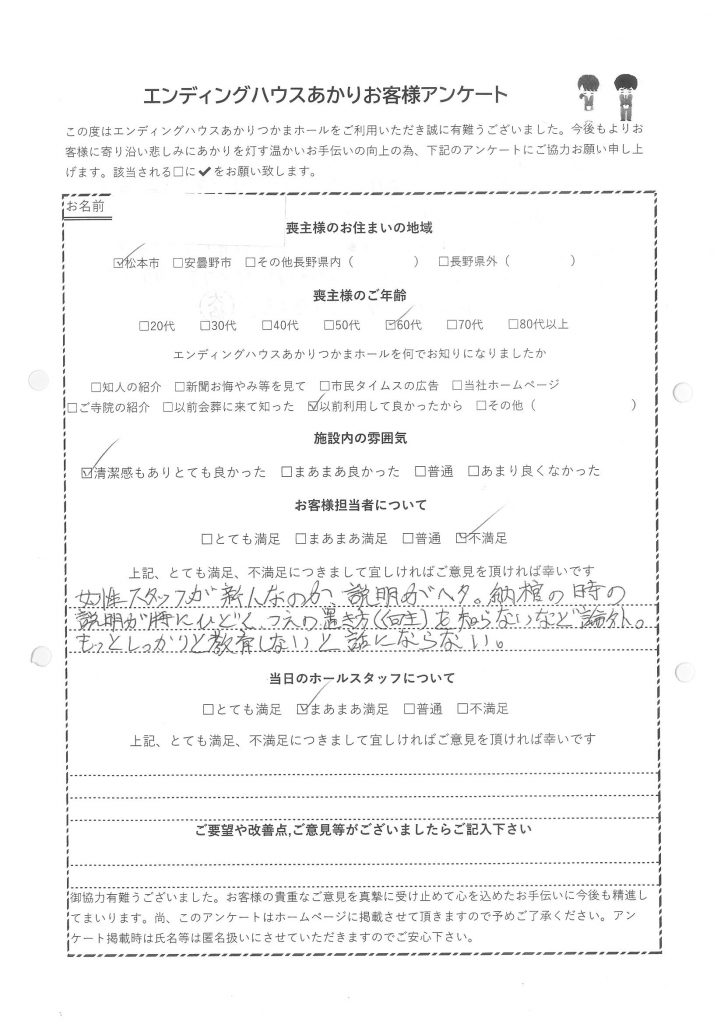 エンディングハウスあかりお客様アンケート
この度はエンディングハウスあかりつかまホールをご利用いただき誠に有難うございました。今後もよりお
客様に寄り沿い悲しみにあかりを灯す温かいお手伝いの向上の為、下記のアンケートにご協力お願い申し上
げます。該当される□に✔をお願い致します。
お名前
喪主様のお住まいの地域
☑松本市 □安曇野市 □その他長野県内（ ） □長野県外（ ）
喪主様のご年齢
□20代 □30代 □40代 □50代 ☑60代 □70代 □80代以上
エンディングハウスあかりつかまホールを何でお知りになりましたか
□知人の紹介 □新聞お悔やみ等を見て □市民タイムスの広告 □当社ホームページ
□ご寺院の紹介 □以前会葬に来て知った ☑以前利用して良かったから □その他（ ）
施設内の雰囲気
☑清潔感もありとても良かった □まあまあ良かった □普通 □あまり良くなかった
お客様担当者について
□とても満足 □まあまあ満足 □普通 ☑不満足
上記、とても満足、不満足につきまして宜しければご意見を頂ければ幸いです
女性スタッフが新人なのか、説明がヘタ。納棺の時の
説明が特にひどく、つえの置き方(向き)を知らないなど論外。
もっとしっかりと教育しないと話にならない。
当日のホールスタッフについて
□とても満足 ☑まあまあ満足 □普通 □不満足
上記、とても満足、不満足につきまして宜しければご意見を頂ければ幸いです
ご要望や改善点,ご意見等がございましたらご記入下さい
御協力有難うございました。お客様の貴重なご意見を真摯に受け止めて心を込めたお手伝いに今後も精進し
てまいります。尚、このアンケートはホームページに掲載させて頂きますので予めご了承ください。アン
ケート掲載時は氏名等は匿名扱いにさせていただきますのでご安心下さい。